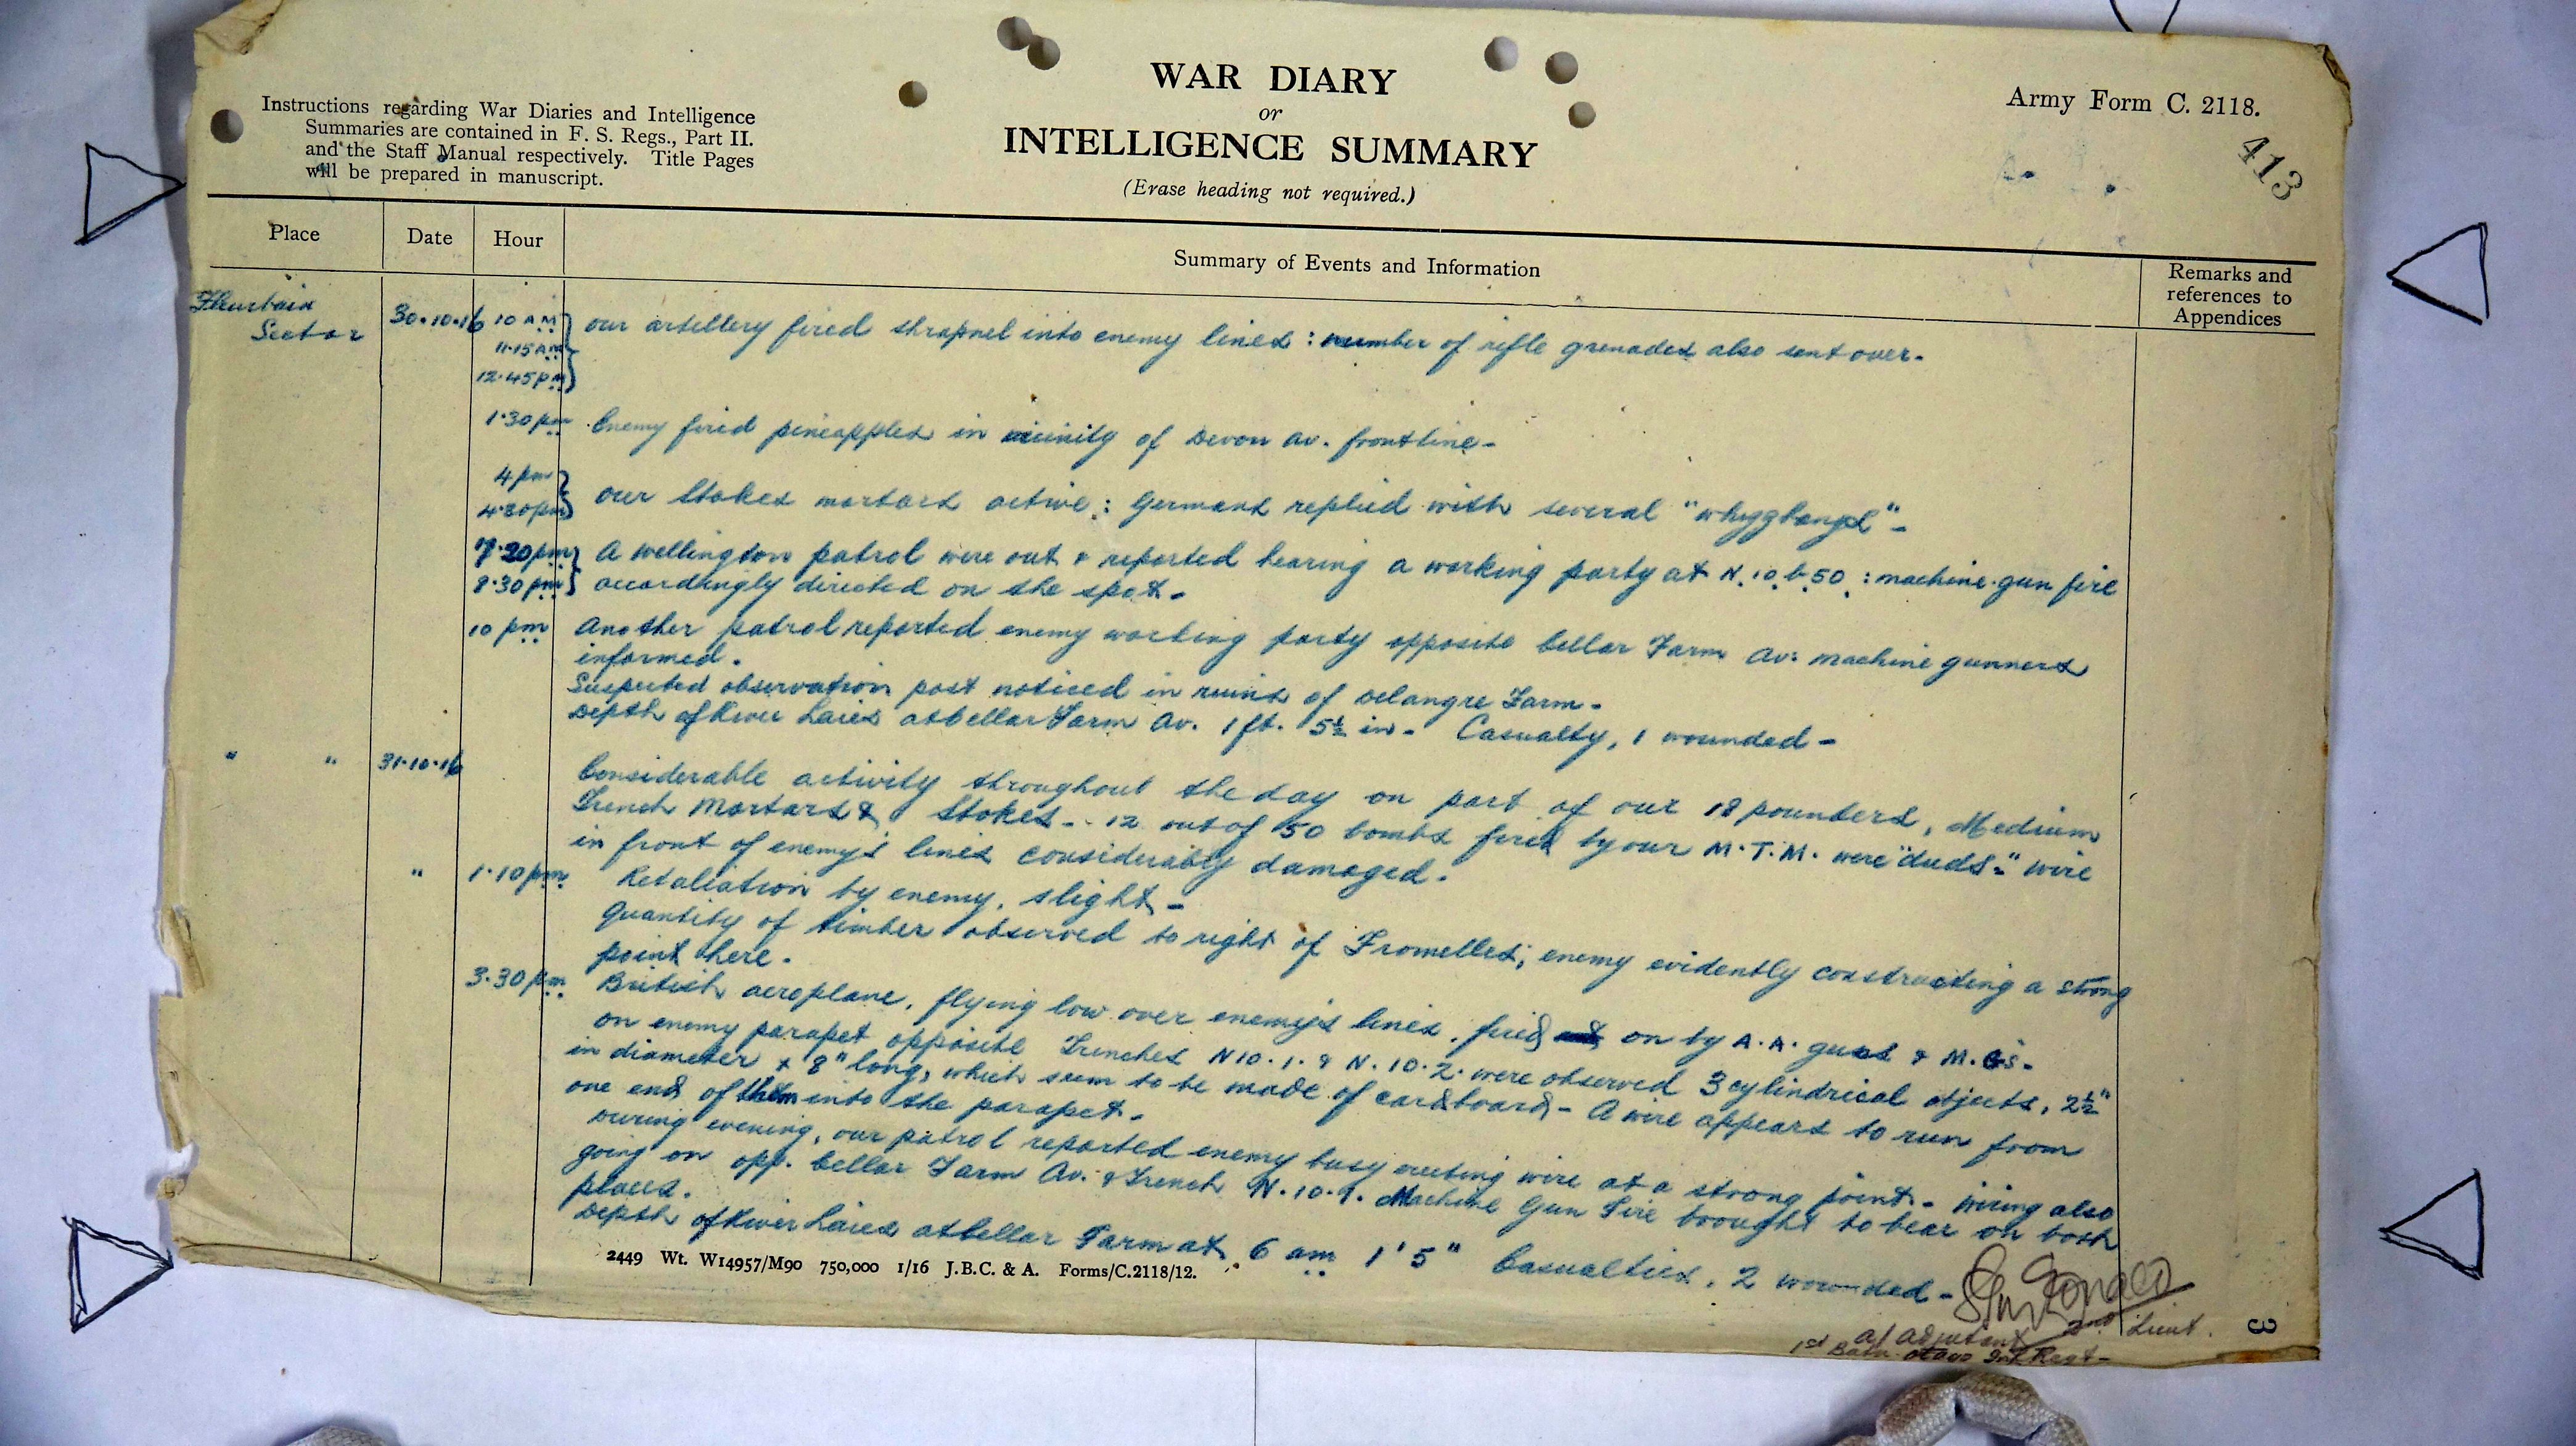 Instructions regarding War Diaries and Intelligence
Summaries are contained in F. S. Regs., Part II.
and the Staff Manual respectively. Title Pages
will be prepared in manuscript.
WAR DIARY
or
INTELLIGENCE SUMMARY
(Erase heading not required.)
Army Form C. 2118.
413
Place Date Hour Summary of Events and Information Remarks and references to Appendices
Fleurbaix
Sector 30.10.16 10 AM our artillery fired shrapnel into enemy lines : number of rifle grenades also sent over.
11.15 AM
12.45 pm
1.30 pm Enemy fired pineapples in vicinity of Devon Av. frontline -
4 pm
4.30 pm our Stokes mortars active : Germans replied with several "whizzbangs" -
7.20 pm A Wellington patrol were out & reported hearing a working party at N. 10. b. 50 : machine gun fire
8.30 pm accordingly directed on the spot -
10 pm Another patrol reported enemy working party opposite Cellar Farm Av: machine gunners
informed.
Suspected observation post noticed in ruins of Delangre Farm -
Depth of River Laies at Cellar Farm Av. 1 ft. 5½ in - Casualty, 1 wounded -
" " 31.10.16 Considerable activity throughout the day on part of our 18 pounders, Medium
Trench Mortars & Stokes - 12 out of 50 bombs fired by our M.T.M. were "duds -" wire
in front of enemy's lines considerably damaged.
" 1.10 pm Retaliation by enemy, slight -
Quantity of timber observed to right of Fromelles; enemy evidently constructing a strong
point here.
3.30 pm British aeroplane, flying low over enemy's lines, fired on by A.A. guns & M.G's -
on enemy parapet opposite Trenches N10.1. & N.10.2. were observed 3 cylindrical objects, 2½"
in diameter x 8" long, which seem to be made of cardboard - A wire appears to run from
one end of them into the parapet -
During evening, our patrol reported enemy busy erecting wire at a strong point - wiring also
going on opp. Cellar Farm Av. & Trench N.10.1. Machine Gun Fire brought to bear on both
places.
Depth of River Laies at Cellar Farm at 6 am 1' 5" Casualties, 2 wounded -
2449 Wt. W14957/M90 750,000 1/16 J.B.C. & A. Forms/C.2118/12.
2nd Lieut.
a/ Adjutant
1st Battn. Otago Inf. Regt -
3